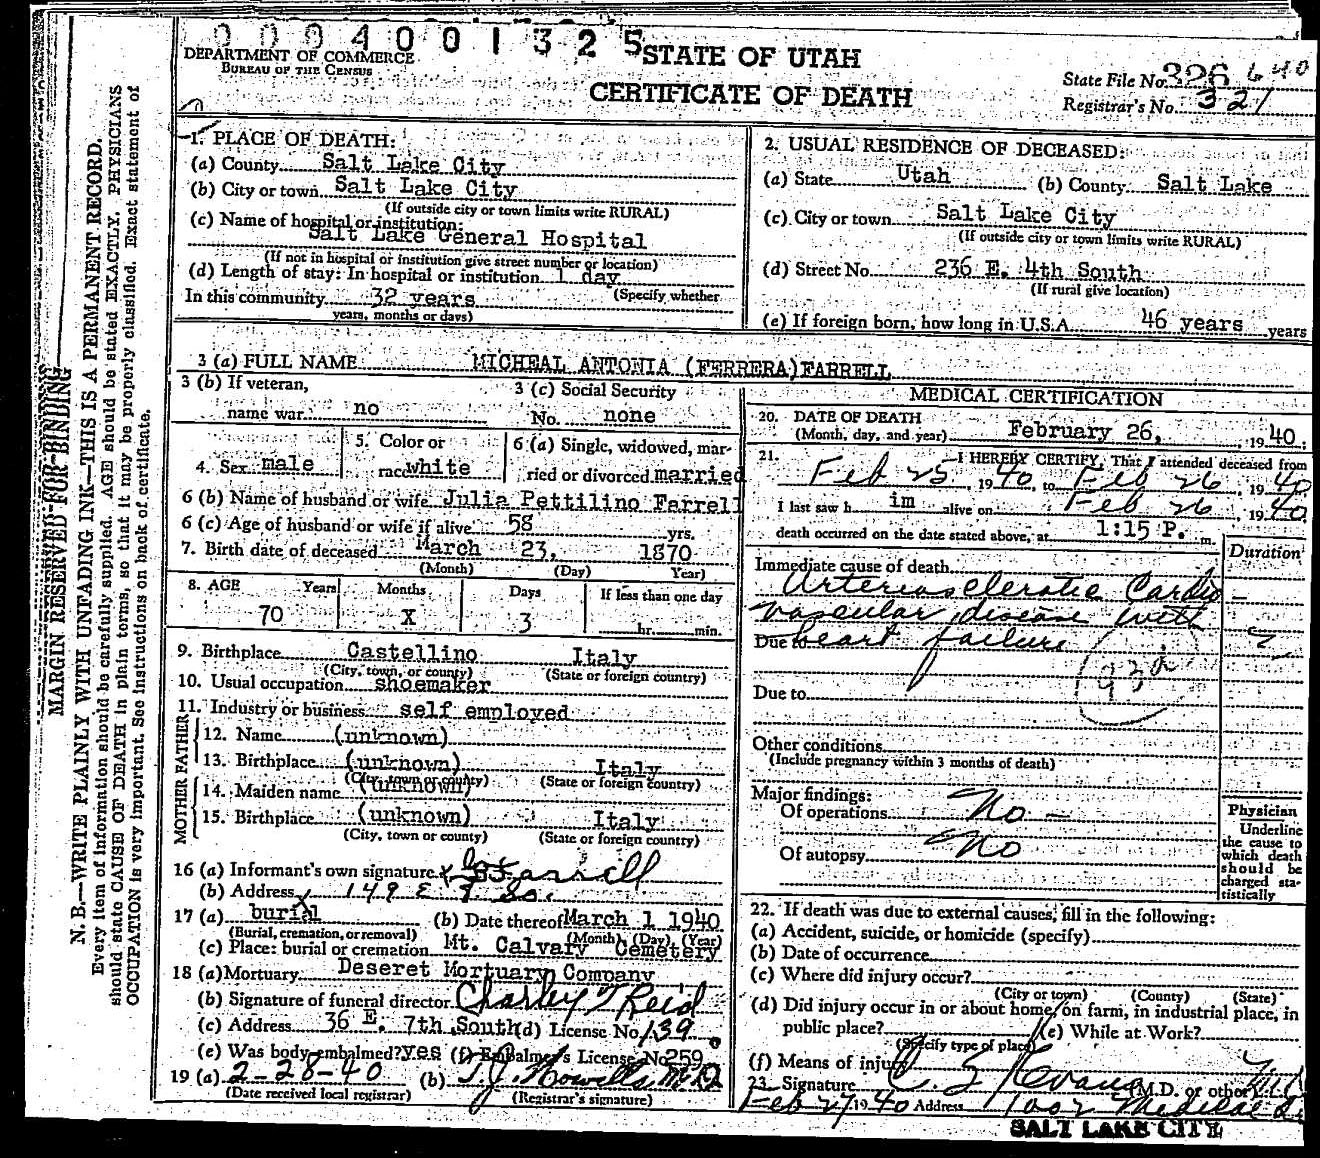 0004001325
DEPARTMENT OF COMMERCE
BUREAU OF THE CENSUS
STATE OF UTAH
CERTIFICATE OF DEATH
State File No. 326 640
Registrar's No. 321
MARGIN RESERVED FOR BINDING
N. B.—WRITE PLAINLY WITH UNFADING INK—THIS IS A PERMANENT RECORD.
Every item of information should be carefully supplied. AGE should be stated EXACTLY. PHYSICIANS
should state CAUSE OF DEATH in plain terms, so that it may be properly classified. Exact statement of
OCCUPATION is very important. See instructions on back of certificate.
1. PLACE OF DEATH:
(a) County Salt Lake City
(b) City or town Salt Lake City
(If outside city or town limits write RURAL)
(c) Name of hospital or institution:
Salt Lake General Hospital
(If not in hospital or institution give street number or location)
(d) Length of stay: In hospital or institution 1 day
(Specify whether
In this community 32 years
years, months or days)
2. USUAL RESIDENCE OF DECEASED:
(a) State Utah (b) County Salt Lake
(c) City or town Salt Lake City
(If outside city or town limits write RURAL)
(d) Street No. 236 E. 4th South
(If rural give location)
(e) If foreign born, how long in U.S.A. 46 years years
3 (a) FULL NAME MICHEAL ANTONIA (FERRERA) FARRELL
3 (b) If veteran,
name war. no
3 (c) Social Security
No. none
4. Sex male
5. Color or
race white
6 (a) Single, widowed, mar-
ried or divorced married
6 (b) Name of husband or wife Julia Pettilino Farrell
6 (c) Age of husband or wife if alive 58 yrs.
7. Birth date of deceased March 23, 1870
(Month) (Day) Year)
8. AGE Years Months Days If less than one day
70 X 3 hr. min.
9. Birthplace Castellino Italy
(City, town, or county) (State or foreign country)
10. Usual occupation shoemaker
11. Industry or business self employed
FATHER
12. Name (unknown)
13. Birthplace (unknown) Italy
(City, town or county) (State or foreign country)
MOTHER
14. Maiden name (unknown)
15. Birthplace (unknown) Italy
(City, town or county) (State or foreign country)
16 (a) Informant's own signature Farrell
(b) Address 149 E So.
17 (a) burial (b) Date thereof March 1 1940
(Burial, cremation, or removal) (Month) (Day) (Year)
(c) Place: burial or cremation Mt. Calvary Cemetery
18 (a) Mortuary Deseret Mortuary Company
(b) Signature of funeral director Charley T Reid
(c) Address 36 E. 7th South (d) License No. 139
(e) Was body embalmed? yes (f) Embalmer's License No. 259
19 (a) 2-28-40 (b) T. J. Howells, M.D.
(Date received local registrar) (Registrar's signature)
MEDICAL CERTIFICATION
20. DATE OF DEATH
(Month, day, and year) February 26, 1940.
21. I HEREBY CERTIFY, That I attended deceased from
Feb 25, 1940, to Feb 26, 1940
I last saw h im alive on Feb 26, 1940.
death occurred on the date stated above, at 1:15 P. m.
Duration
Immediate cause of death
Arteriosclerotic Cardio
vascular disease with
Due to heart failure
93d
Due to
Other conditions
(Include pregnancy within 3 months of death)
Major findings:
Of operations No
Of autopsy No
Physician
Underline
the cause to
which death
should be
charged sta-
tistically
22. If death was due to external causes, fill in the following:
(a) Accident, suicide, or homicide (specify)
(b) Date of occurrence
(c) Where did injury occur?
(City or town) (County) (State)
(d) Did injury occur in or about home, on farm, in industrial place, in
public place? (e) While at Work?
(Specify type of place)
(f) Means of injury
23. Signature Evans M.D. or other M.D.
Feb 27 1940 Address 1002 Medical
SALT LAKE CITY